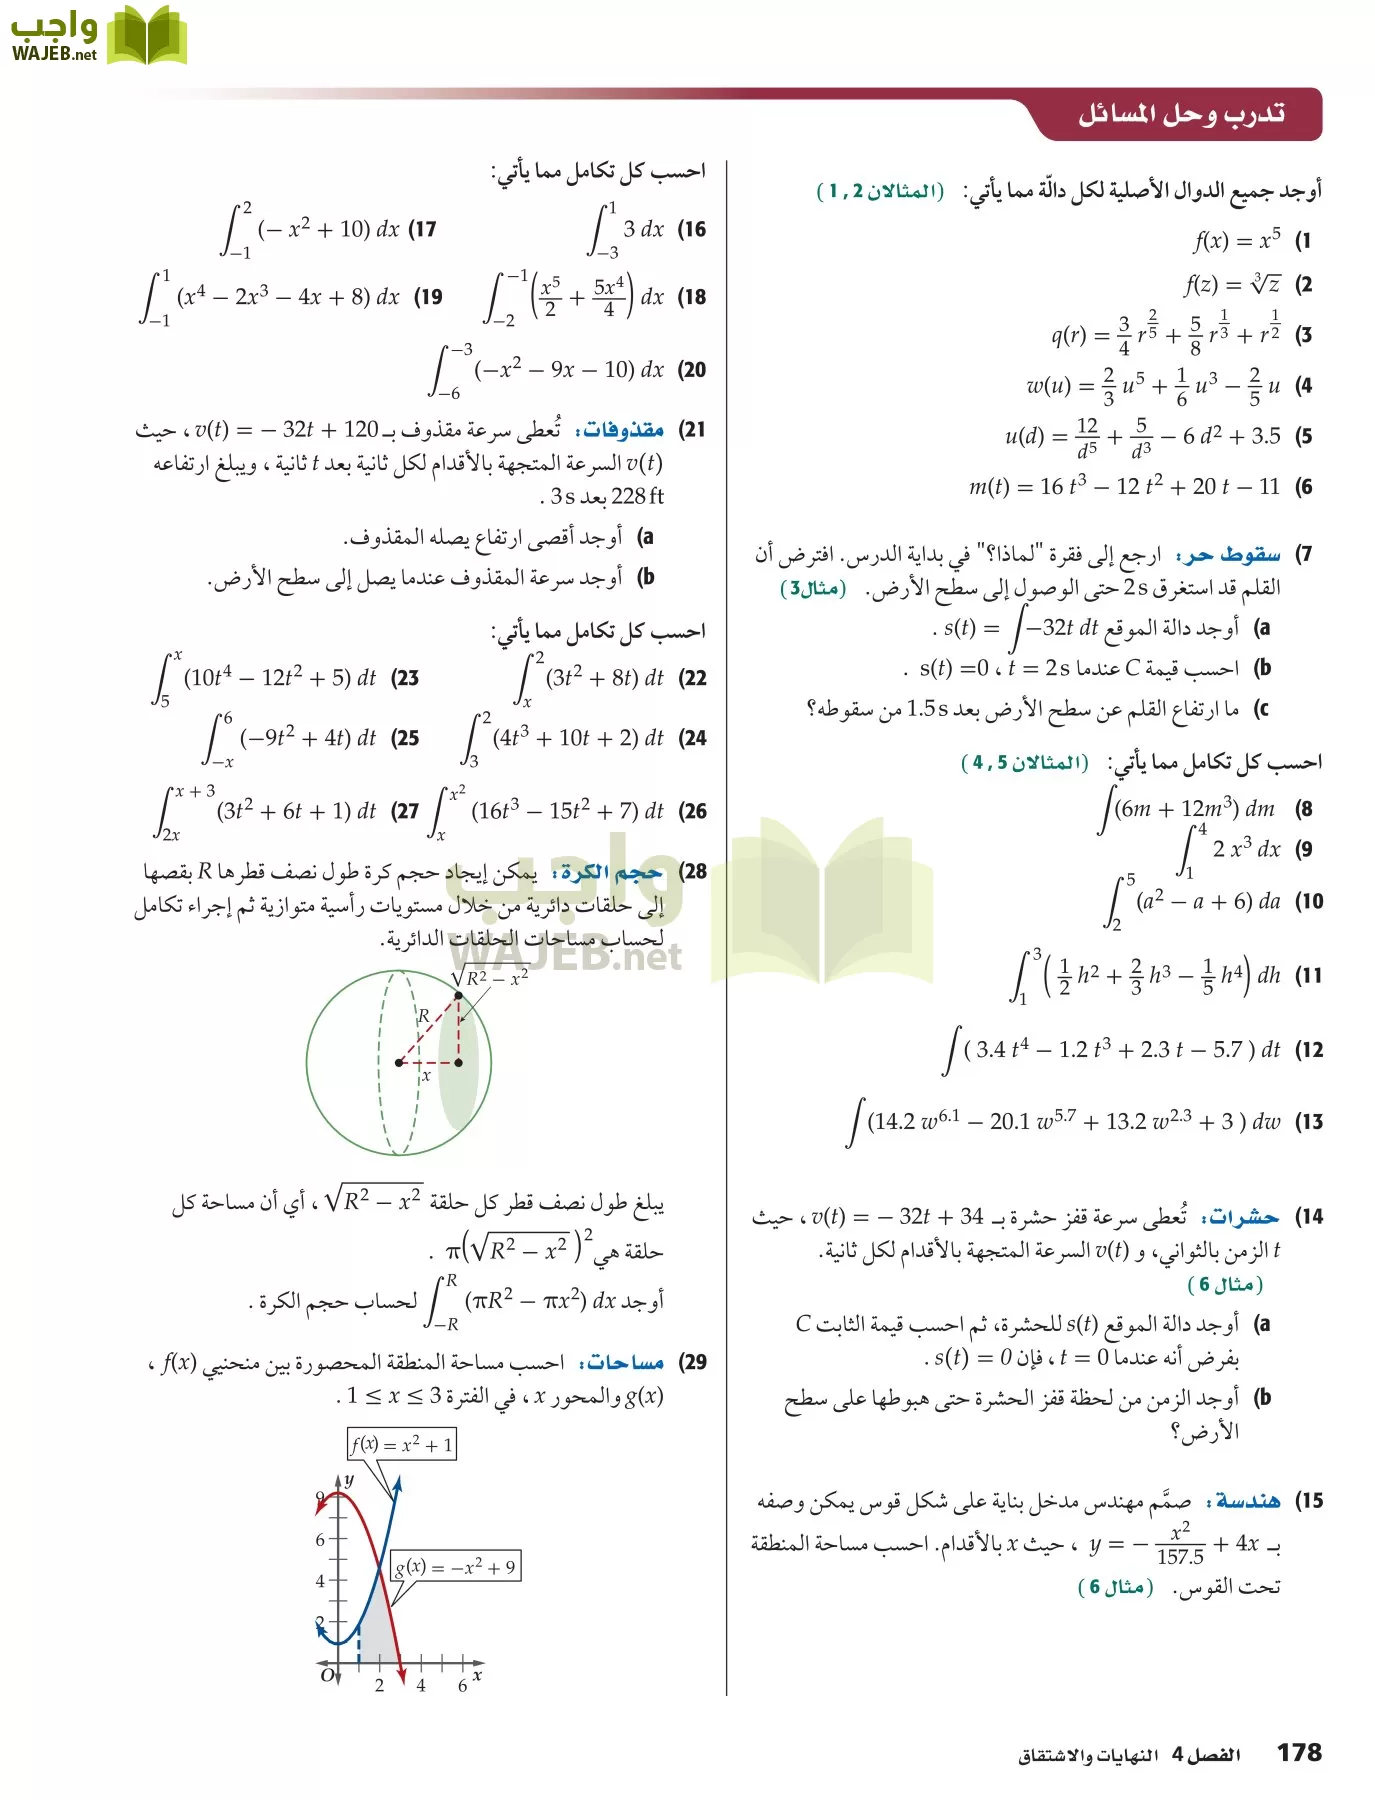 واجب
WAJEB.net
تدرب وحل المسائل
أوجد جميع الدوال الأصلية لكل دالّة مما يأتي: (المثالان 1, 2)
1) f(x) = x⁵
2) f(z) = ∛z
3) q(r) = 3/4 r^(2/5) + 5/8 r^(1/3) + r^(1/2)
4) w(u) = 2/3 u⁵ + 1/6 u³ − 2/5 u
5) u(d) = 12/d⁵ + 5/d³ − 6 d² + 3.5
6) m(t) = 16 t³ − 12 t² + 20 t − 11
7) سقوط حر: ارجع إلى فقرة "لماذا؟" في بداية الدرس. افترض أن
القلم قد استغرق 2 s حتى الوصول إلى سطح الأرض. (مثال 3)
a) أوجد دالة الموقع s(t) = ∫−32t dt .
b) احسب قيمة C عندما t = 2 s ، s(t) =0 .
c) ما ارتفاع القلم عن سطح الأرض بعد 1.5 s من سقوطه؟
احسب كل تكامل مما يأتي: (المثالان 4, 5)
8) ∫(6m + 12m³) dm
9) ∫₁⁴ 2 x³ dx
10) ∫₂⁵ (a² − a + 6) da
11) ∫₁³ (1/2 h² + 2/3 h³ − 1/5 h⁴) dh
12) ∫( 3.4 t⁴ − 1.2 t³ + 2.3 t − 5.7 ) dt
13) ∫(14.2 w^6.1 − 20.1 w^5.7 + 13.2 w^2.3 + 3 ) dw
14) حشرات: تُعطى سرعة قفز حشرة بـ v(t) = − 32t + 34 ، حيث
t الزمن بالثواني، و v(t) السرعة المتجهة بالأقدام لكل ثانية.
(مثال 6)
a) أوجد دالة الموقع s(t) للحشرة، ثم احسب قيمة الثابت C
بفرض أنه عندما t = 0 ، فإن s(t) = 0 .
b) أوجد الزمن من لحظة قفز الحشرة حتى هبوطها على سطح
الأرض؟
15) هندسة: صمَّم مهندس مدخل بناية على شكل قوس يمكن وصفه
بـ y = − x²/157.5 + 4x ، حيث x بالأقدام. احسب مساحة المنطقة
تحت القوس. (مثال 6)
احسب كل تكامل مما يأتي:
16) ∫₋₃¹ 3 dx
17) ∫₋₁² (− x² + 10) dx
18) ∫₋₂⁻¹ (x⁵/2 + 5x⁴/4) dx
19) ∫₋₁¹ (x⁴ − 2x³ − 4x + 8) dx
20) ∫₋₆⁻³ (−x² − 9x − 10) dx
21) مقذوفات: تُعطى سرعة مقذوف بـ v(t) = − 32t + 120 ، حيث
v(t) السرعة المتجهة بالأقدام لكل ثانية بعد t ثانية ، ويبلغ ارتفاعه
228 ft بعد 3 s .
a) أوجد أقصى ارتفاع يصله المقذوف.
b) أوجد سرعة المقذوف عندما يصل إلى سطح الأرض.
احسب كل تكامل مما يأتي:
22) ∫ₓ² (3t² + 8t) dt
23) ∫₅ˣ (10t⁴ − 12t² + 5) dt
24) ∫₃² (4t³ + 10t + 2) dt
25) ∫₋ₓ⁶ (−9t² + 4t) dt
26) ∫ₓ^(x²) (16t³ − 15t² + 7) dt
27) ∫₂ₓ^(x + 3) (3t² + 6t + 1) dt
28) حجم الكرة: يمكن إيجاد حجم كرة طول نصف قطرها R بقصها
إلى حلقات دائرية من خلال مستويات رأسية متوازية ثم إجراء تكامل
لحساب مساحات الحلقات الدائرية.
√(R² − x²)
R
x
يبلغ طول نصف قطر كل حلقة √(R² − x²) ، أي أن مساحة كل
حلقة هي π(√(R² − x²))² .
أوجد ∫₋R^R (πR² − πx²) dx لحساب حجم الكرة .
29) مساحات: احسب مساحة المنطقة المحصورة بين منحنيي f(x) ،
g(x) والمحور x ، في الفترة 1 ≤ x ≤ 3 .
f(x) = x² + 1
y
9
6
g(x) = −x² + 9
4
2
O 2 4 6 x
واجب
WAJEB.net
178 الفصل 4 النهايات والاشتقاق